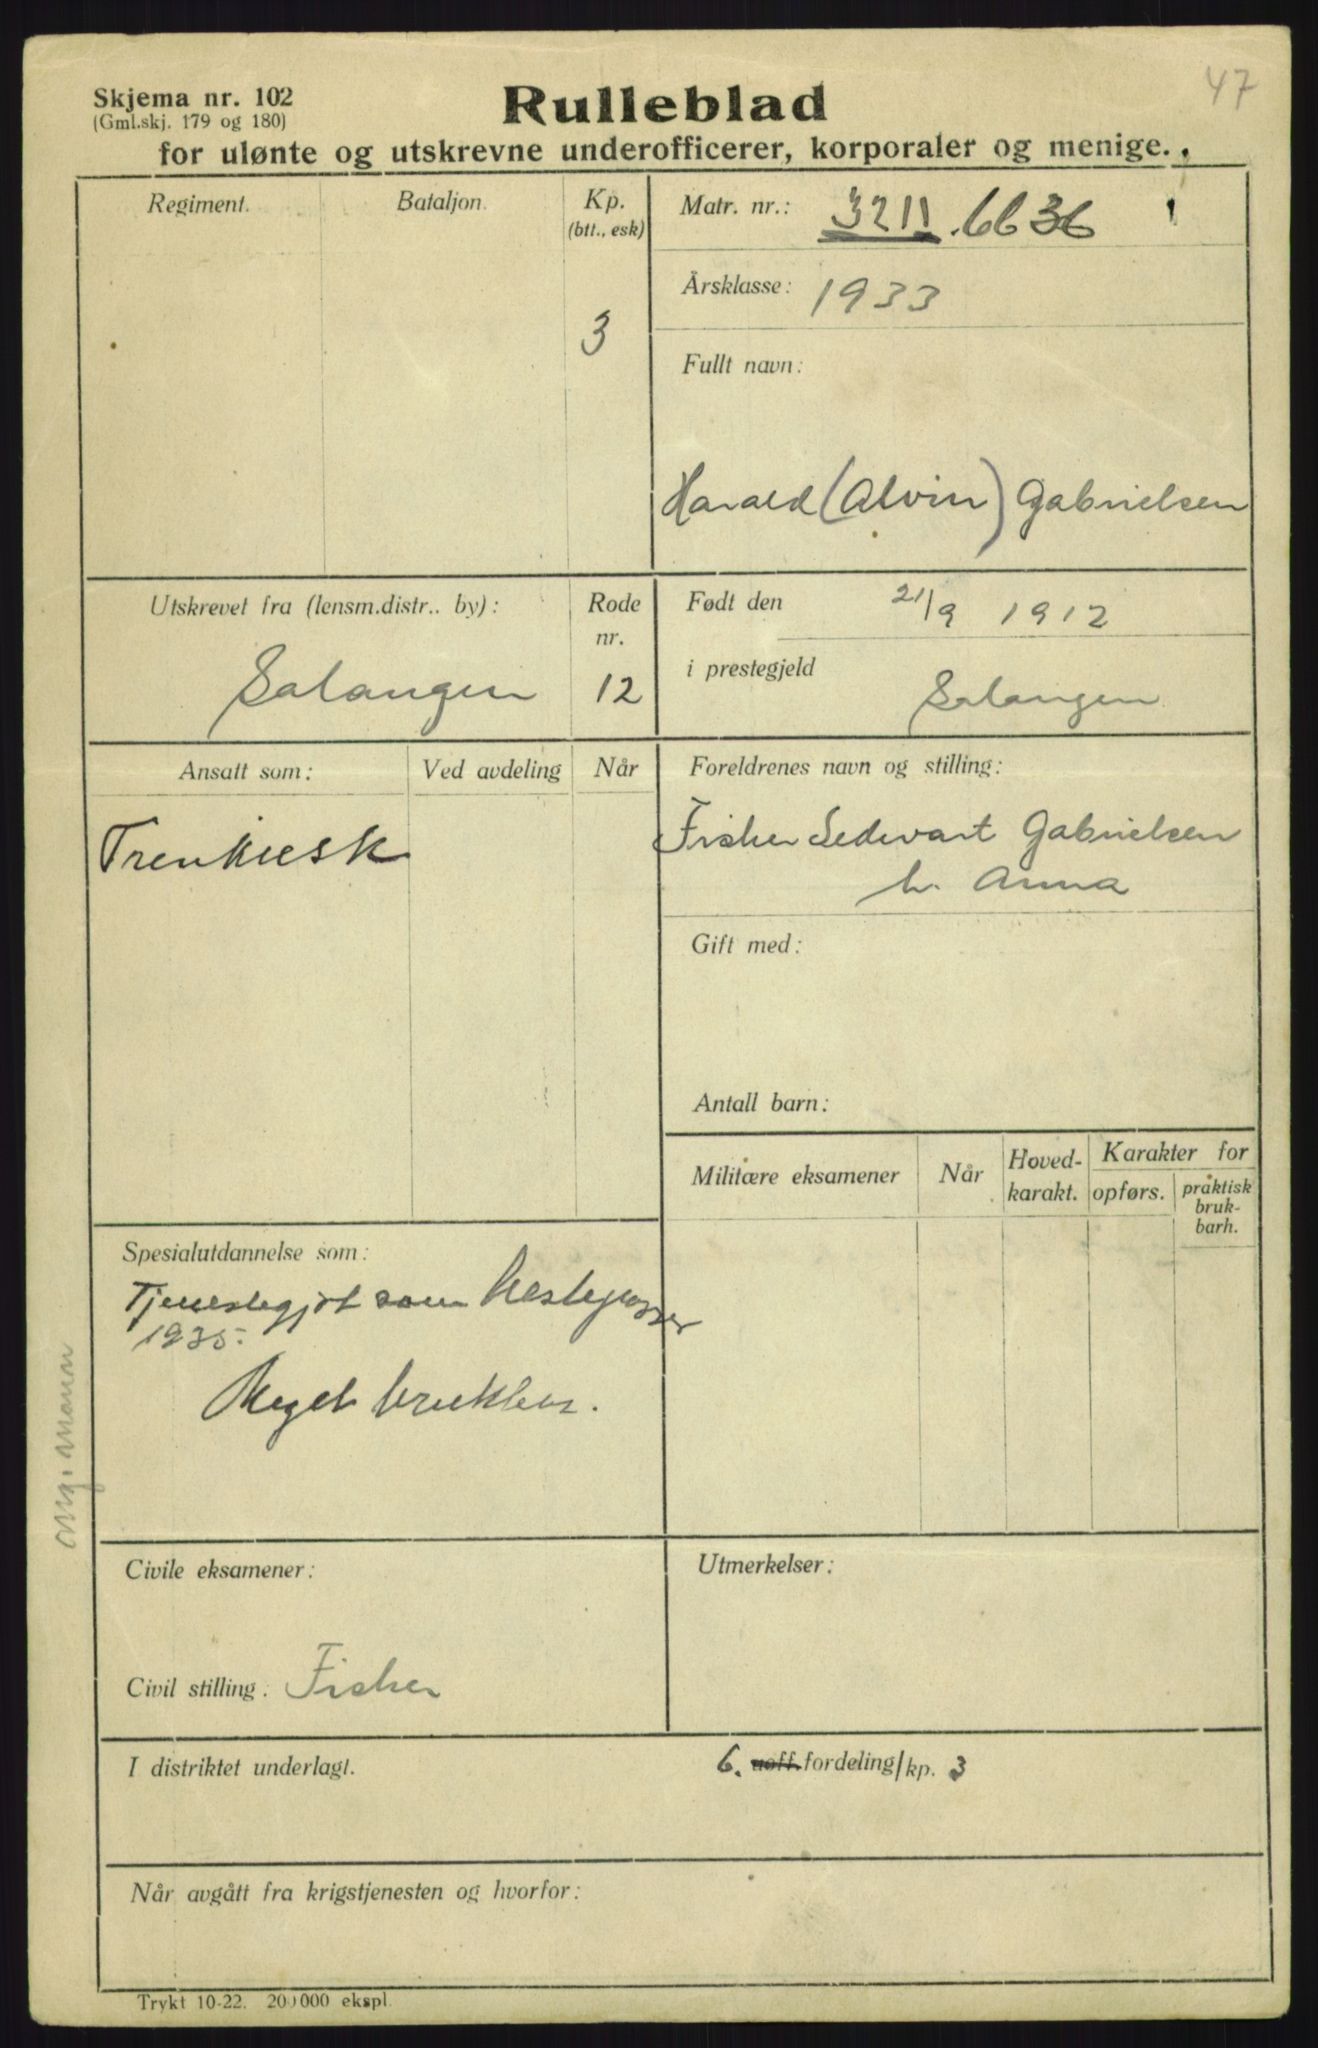 47
Skjema nr. 102
(Gml.skj. 179 og 180)
Rulleblad
for ulønte og utskrevne underofficerer, korporaler og menige.
Regiment.
Bataljon.
Kp.
(btt., esk)
3
Matr. nr.: 3211.6636
Årsklasse: 1933
Fullt navn:
Harald (Alvin) Gabrielsen
Utskrevet fra (lensm.distr.. by):
Salangen
Rode
nr.
12
Født den 21/9 1912
i prestegjeld Salangen
Ansatt som:
Ved avdeling
Når
Trenkusk
Foreldrenes navn og stilling:
Fisker Sedvart Gabrielsen
h. Anna
Gift med:
Antall barn:
Militære eksamener
Når
Hoved-
karakt.
Karakter for
opførs.
praktisk
bruk-
barh.
Spesialutdannelse som:
Tjenestegjøt som hestepasser
1935.
Meget brukbar.
Mg. mann
Civile eksamener:
Utmerkelser:
Civil stilling: Fisker
I distriktet underlagt.
6. uoff. fordeling/kp. 3
Når avgått fra krigstjenesten og hvorfor:
Trykt 10-22. 200000 ekspl.